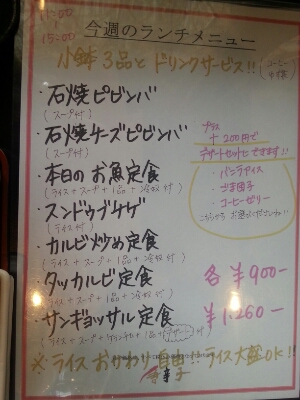 11:00
15:00
今週のランチメニュー
小鉢3品とドリンクサービス!!
・石焼ピビンバ
(スープ付)
・石焼チーズピビンバ
(スープ付)
・本日のお魚定食
(ライス+スープ+1品+冷奴付)
・スンドゥブチゲ
(ライス付)
・カルビ炒め定食
(ライス+スープ+1品+冷奴付)
・タッカルビ定食
(ライス+スープ+1品+冷奴付)
・サンギョッサル定食
プラス
+200円で
デザートセットにできます!!
・バニラアイス
・ごま団子
・コーヒーゼリー
各¥900-
¥1,260-
※ライスおかわり自由!!ライス大盛OK!!